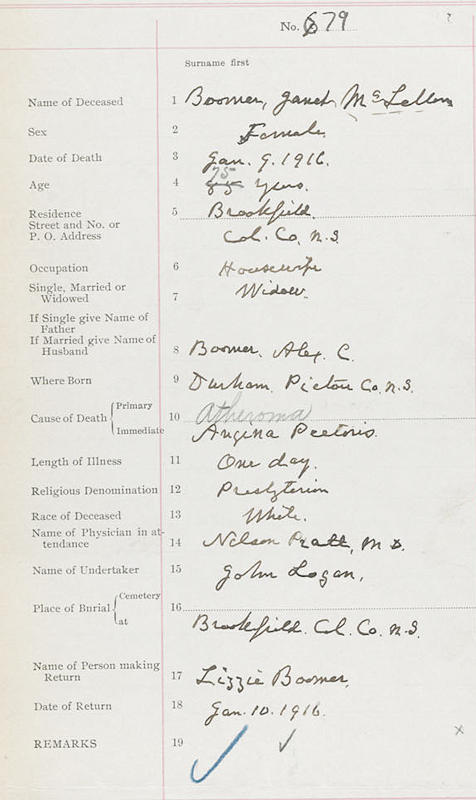 No. 679
Surname first
Name of Deceased 1 Boomer, Janet, McLellan
Sex 2 Female
Date of Death 3 Jan. 9. 1916.
Age 4 75 85 years.
Residence 5 Brookfield.
Street and No. or
P. O. Address Col. Co. N.S.
Occupation 6 Housewife
Single, Married or
Widowed 7 Widow.
If Single give Name of
Father
If Married give Name of
Husband 8 Boomer. Alex. C.
Where Born 9 Durham. Pictou Co. N.S.
Cause of Death { Primary 10 Atheroma
Immediate Angina Pectoris.
Length of Illness 11 One day.
Religious Denomination 12 Presbyterian
Race of Deceased 13 White.
Name of Physician in at-
tendance 14 Nelson Pratt, M D.
Name of Undertaker 15 John Logan,
Place of Burial { Cemetery 16
at Brookfield. Col. Co. N.S.
Name of Person making
Return 17 Lizzie Boomer,
Date of Return 18 Jan. 10. 1916.
REMARKS 19